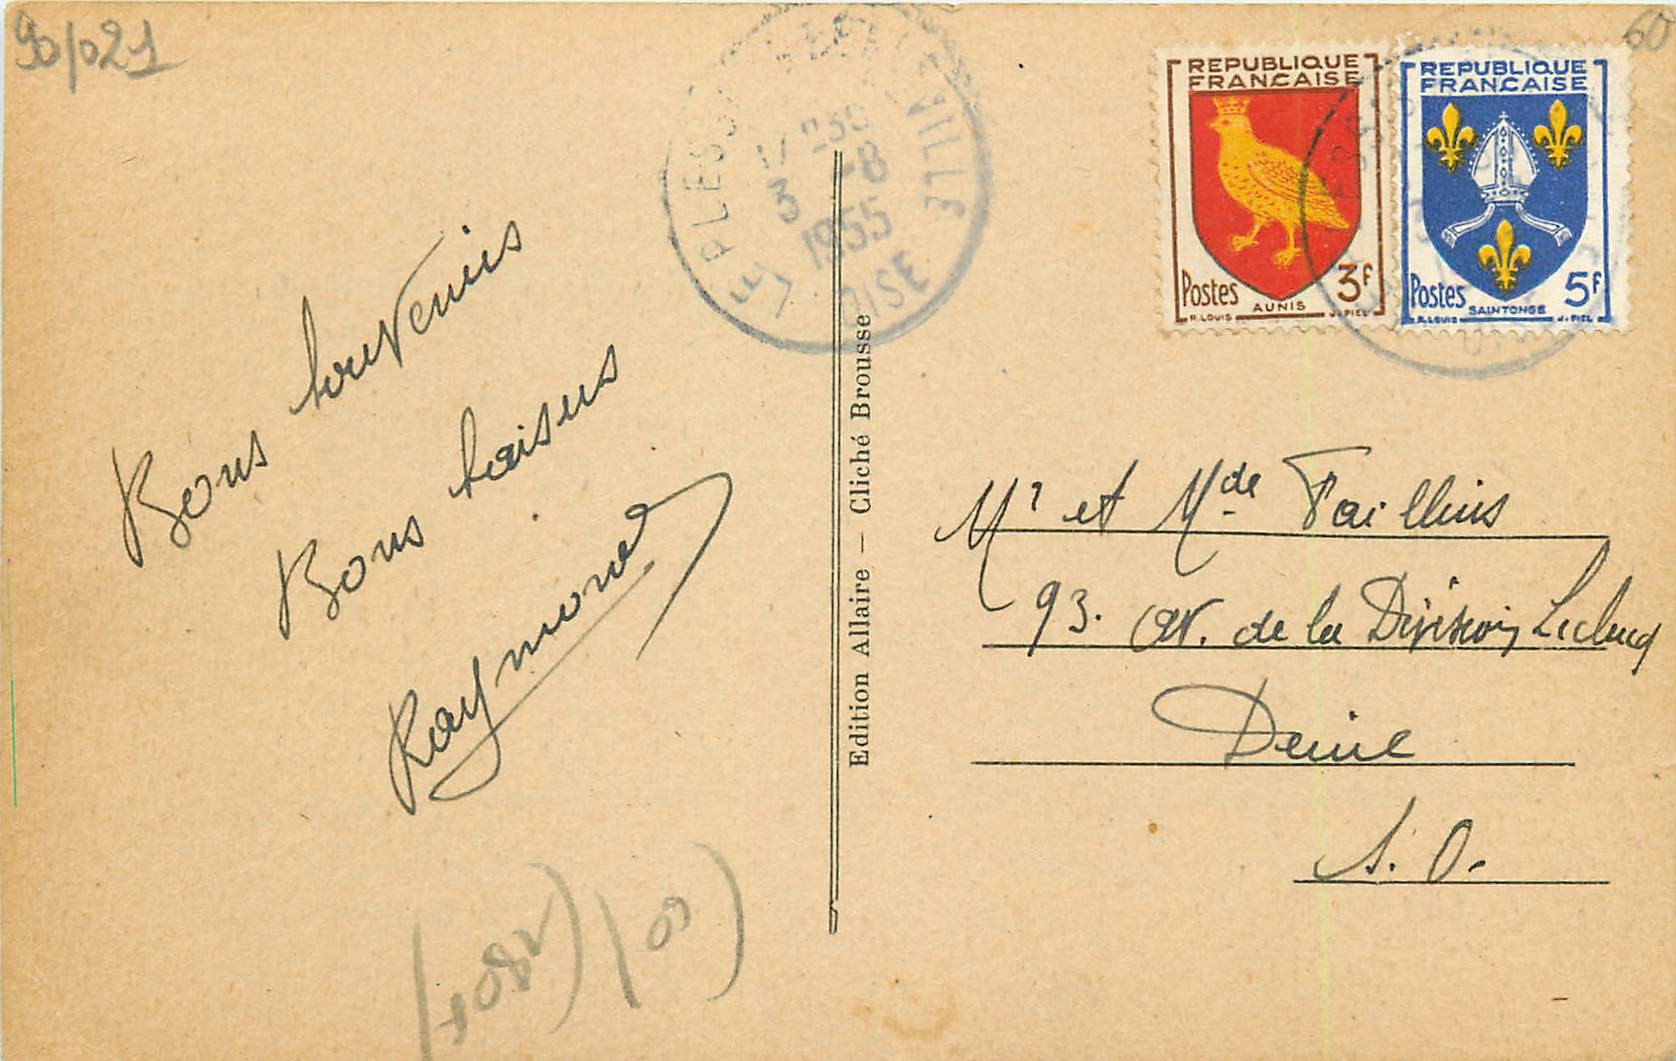 90/021
60
LE PLESSIS BELLEVILLE
17 H 30
3 -8
1955
OISE
REPUBLIQUE
FRANÇAISE
Postes
3F
AUNIS
R. LOUIS
J. PIEL
REPUBLIQUE
FRANÇAISE
Postes
5F
SAINTONGE
R. LOUIS
J. PIEL
Bons souvenirs
Bons baisers
Raymond
Edition Allaire — Cliché Brousse
Mr et Mde Taillins
93. av. de la Division Leclerc
Deuil
S. O.